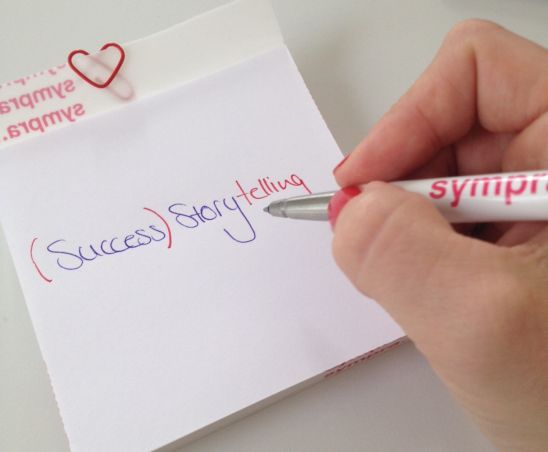 sympra.
sympra.
sympra.
(Success) Storytelling
sympra